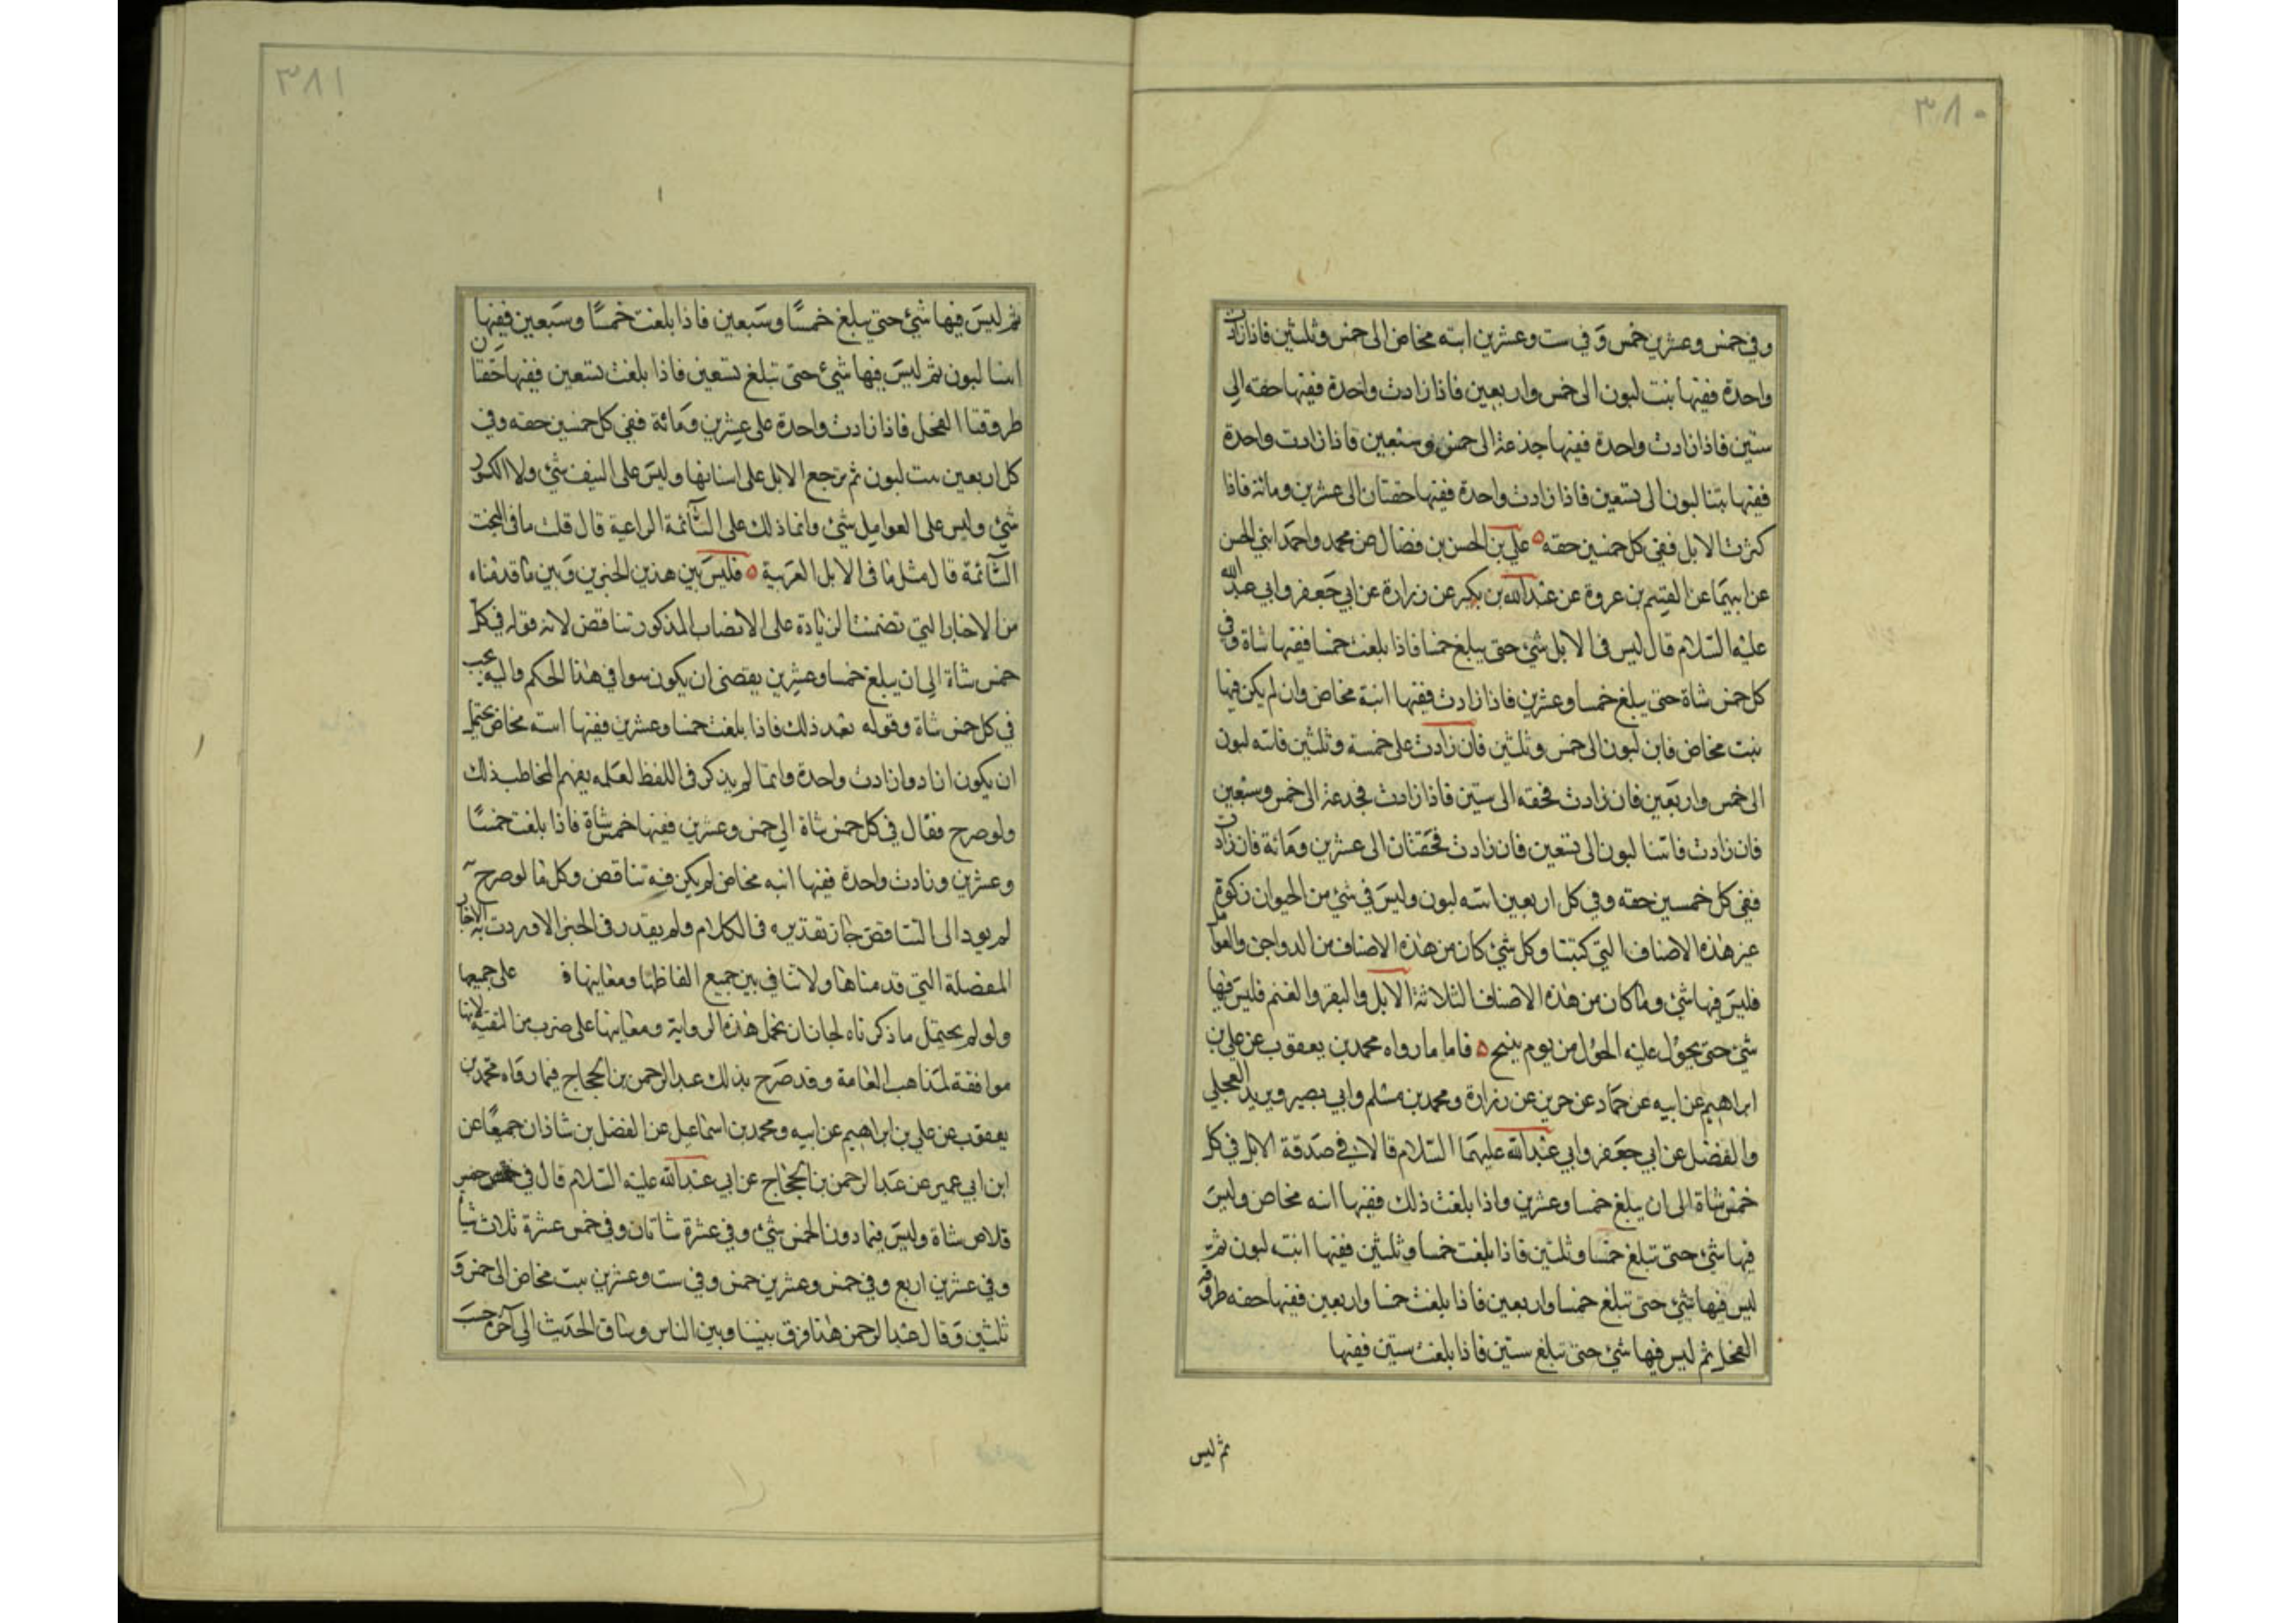 ٣٨٠
وفي خمس وعشرين خمس وفي ست وعشرين ابنه مخاض الى خمس وثلثين فاذا زادت
واحدة ففيها بنت لبون الى خمس واربعين فاذا زادت واحدة ففيها حقه الى
ستين فاذا زادت واحدة ففيها جذعة الى خمس وسبعين فاذا زادت واحدة
ففيها بنتا لبون الى تسعين فاذا زادت واحدة ففيها حقتان الى عشرين ومائة فاذا
كثرت الابل ففي كل خمسين حقه ٥ علي بن الحسن بن فضال عن محمد واحمد ابني الحسن
عن ابيهما عن القسم بن عروة عن عبدالله بن بكير عن زرارة عن ابي جعفر وابي عبدالله
عليه السلام قال ليس في الابل شئ حتى يبلغ خمسا فاذا بلغت خمسا ففيها شاة وفي
كل خمس شاة حتى يبلغ خمسا وعشرين فاذا زادت ففيها ابنة مخاض وان لم يكن فيها
بنت مخاض فابن لبون الى خمس وثلثين فان زادت على خمسة وثلثين فابنه لبون
الى خمس واربعين فان زادت فحقه الى ستين فاذا زادت فجذعة الى خمس وسبعين
فان زادت فابنتا لبون الى تسعين فان زادت فحقتان الى عشرين ومائة فان زادت
ففي كل خمسين حقه وفي كل اربعين ابنه لبون وليس في شئ من الحيوان زكوة
غير هذه الاصناف التي كتبنا وكل شئ كان من هذه الاصناف من الدواجن والعوامل
فليس فيها شئ وما كان من هذه الاصناف الثلاثة الابل والبقر والغنم فليس فيها
شئ حتى يحول عليه الحول من يوم ينتج ٥ فاما ما رواه محمد بن يعقوب عن علي بن
ابراهيم عن ابيه عن حماد عن حريز عن زرارة ومحمد بن مسلم وابي بصير وبريد العجلي
والفضل عن ابي جعفر وابي عبدالله عليهما السلام قالا في صدقة الابل في كل
خمس شاة الى ان يبلغ خمسا وعشرين واذا بلغت ذلك ففيها ابنه مخاض وليس
فيها شئ حتى تبلغ خمسا وثلثين فاذا بلغت خمسا وثلثين ففيها ابنت لبون ثم
ليس فيها شئ حتى تبلغ خمسا واربعين فاذا بلغت خمسا واربعين ففيها حقه طروقة
الفحل ثم ليس فيها شئ حتى تبلغ ستين فاذا بلغت ستين ففيها
ثم ليس
٣٨١
ثم ليس فيها شئ حتى يبلغ خمسا وسبعين فاذا بلغت خمسا وسبعين ففيها
ابنتا لبون ثم ليس فيها شئ حتى تبلغ تسعين فاذا بلغت تسعين ففيها حقتان
طروقتا الفحل فاذا زادت واحدة على عشرين ومائة ففي كل خمسين حقه وفي
كل اربعين بنت لبون ثم ترجع الابل على اسنانها وليس على النيف شئ ولا الكسور
شئ وليس على العوامل شئ وانما ذلك على السائمة الراعية قال قلت ما في البخت
السائمة قال مثل ما في الابل العربية ٥ فليس بين هذين الخبرين وبين ما قدمناه
من الاخبار التي تضمنت الزيادة على الانصاب المذكور تناقض لانه قوله في كل
خمس شاة الى ان يبلغ خمسا وعشرين يقتضي ان يكون سوا في هذا الحكم وانه يجب
في كل خمس شاة وقوله بعد ذلك فاذا بلغت خمسا وعشرين ففيها ابنه مخاض يحتمل
ان يكون اراد وازادت واحدة وانما لم يذكر في اللفظ لعلمه بفهم المخاطب ذلك
ولو صرح فقال في كل خمس شاة الى خمس وعشرين ففيها خمس شاة فاذا بلغت خمسا
وعشرين وزادت واحدة ففيها ابنه مخاض لم يكن فيه تناقض وكل ما لو صرح به
لم يود الى التناقض جاز تقديره في الكلام ولم يقدر في الخبر الا ما وردت به الاخبار
المفضلة التي قدمناها ولا تنافي بين جميع الفاظها ومعاينها ف على جميعها
ولو لم يحتمل ما ذكرناه لجاز ان نحمل هذه الرواية ومعاينها على ضرب من التقية لانها
موافقة لمذاهب العامة وقد صرح بذلك عبد الرحمن بن الحجاج فيما رواه محمد بن
يعقوب عن علي بن ابراهيم عن ابيه ومحمد بن اسماعيل عن الفضل بن شاذان جميعا عن
ابن ابي عمير عن عبد الرحمن بن الحجاج عن ابي عبدالله عليه السلام قال في خمس
قلاص شاة وليس فيما دون الخمس شئ وفي عشرة شاتان وفي خمس عشرة ثلاث شياه
وفي عشرين اربع وفي خمس وعشرين خمس وفي ست وعشرين بنت مخاض الى خمس و
ثلثين وقال عبد الرحمن هذا فرق بيننا وبين الناس وساق الحديث الى آخره حسب